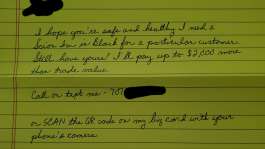 I hope you're safe and healthy I need a
Scion tc in Black for a particular customer.
Still have yours? I'll pay up to $2,000 more
than trade value.
Call or text me - 707
or SCAN the QR code on my biz card with your
phone's camera